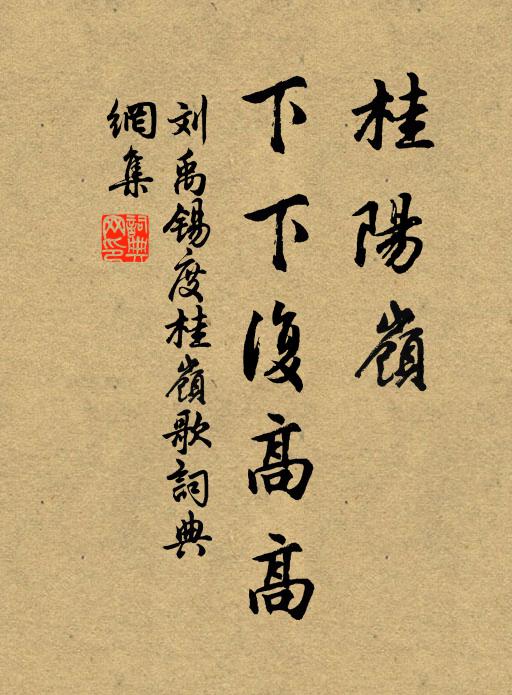 桂陽嶺
下下復高高
刘禹锡度桂嶺歌詞典
網集
詞典
网印